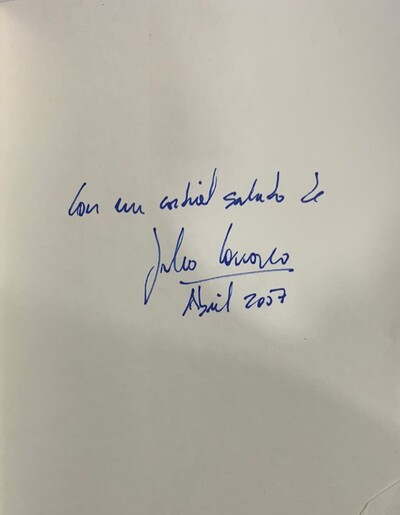 Con un cordial saludo de
Julio
Abril 2007